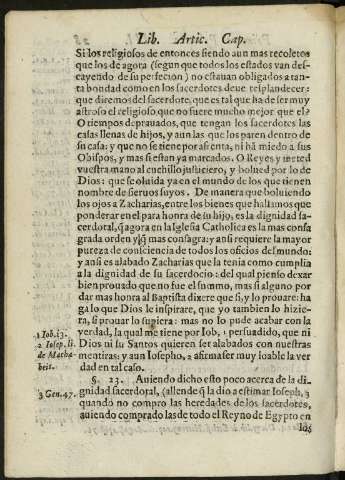 Lib. Artic. Cap.
Si los religiosos de entonces siendo aun mas recoletos
que los de agora (segun que todos los estados van des-
cayendo de su perfecion) no estauan obligados a tan-
ta bondad como en los sacerdotes deue resplandecer:
que diremos del sacerdote, que es tal que ha de ser muy
astroso el religioso que no fuere mucho mejor que el?
O tiempos deprauados, que tengan los sacerdotes las
casas llenas de hijos, y aun las que los paren dentro de
su casa: y que no se tiene por afrenta, ni há miedo a sus
Obispos, y mas si estan ya marcados. O Reyes y meted
vuestra mano al cuchillo justiciero, y bolued por lo de
Dios: que se oluida ya en el mundo de los que tienen
nombre de sieruos suyos. De manera que boluiendo
los ojos a Zacharias, entre los bienes que hallamos que
ponderar en el para honra de su hijo, es la dignidad sa-
cerdotal, q̃ agora en la Iglesia Catholica es la mas consa
grada orden y lq̃ mas consagra: y ansi requiere la mayor
pureza de consciencia de todos los oficios del mundo:
y ansi es alabado Zacharias que la tenia como cumplia
a la dignidad de su sacerdocio: del qual pienso dexar
bien prouado que no fue el summo, mas si alguno por
dar mas honra al Baptista dixere que si, y lo prouare: ha
ga lo que Dios le inspirare, que yo tambien lo hizie-
ra, si prouar lo supiera: mas no lo pude acabar con la
verdad, la qual me tiene por Iob, 1 persuadido, que ni
Dios ni su Santos quieren ser alabados con nuestras
mentiras: y aun Iosepho, 2 afirma ser muy loable la ver
dad en tal caso.
1 Iob. 13.
2 Iosep. li.
de Macha
beis.
§. 23. Auiendo dicho esto poco acerca de la di-
gnidad sacerdotal, (allende q̃ la dio a estimar Ioseph, 3
quando no compro las heredades de los sacerdotes,
auiendo comprado las de todo el Reyno de Egypto en
3 Gen. 47.
los